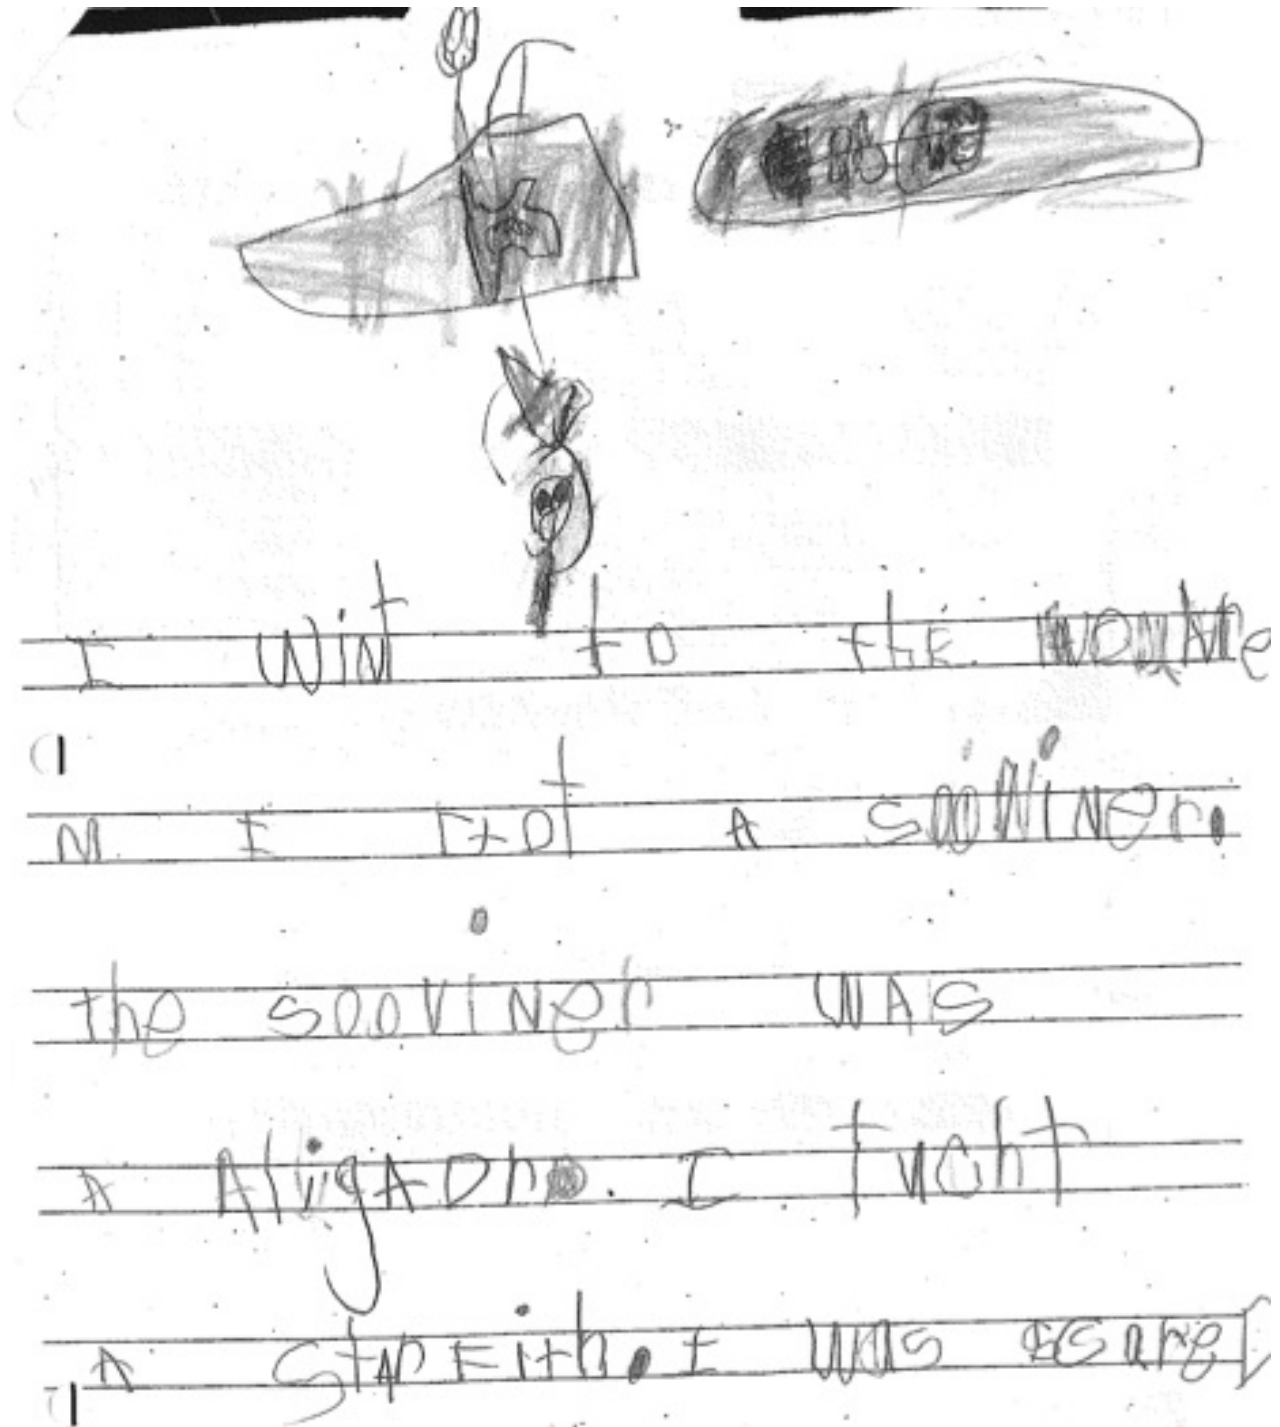 I Wint to the
M I GOt A sooviner.
the sooviner WAS
A AligADr. I tucht
A StArFith. I was scareD